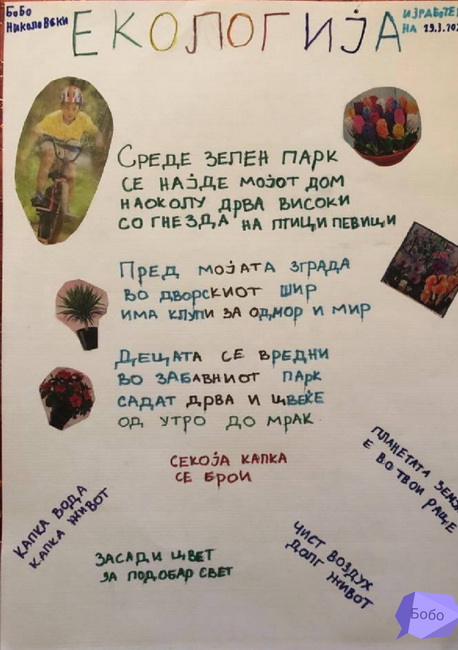 Бобо
Николовски
ЕКОЛОГИЈА
ИЗРАБОТЕ
НА 29.3.202
СРЕДЕ ЗЕЛЕН ПАРК
СЕ НАЈДЕ МОЈОТ ДОМ
НАОКОЛУ ДРВА ВИСОКИ
СО ГНЕЗДА НА ПТИЦИ ПЕВИЦИ
ПРЕД МОЈАТА ЗГРАДА
ВО ДВОРСКИОТ ШИР
ИМА КЛУПИ ЗА ОДМОР И МИР
ДЕЦАТА СЕ ВРЕДНИ
ВО ЗАБАВНИОТ ПАРК
САДАТ ДРВА И ЦВЕЌЕ
ОД УТРО ДО МРАК
СЕКОЈА КАПКА
СЕ БРОИ
ПЛАНЕТАТА ЗЕМЈ
Е ВО ТВОИ РАЦЕ
КАПКА ВОДА
КАПКА ЖИВОТ
ЗАСАДИ ЦВЕТ
ЗА ПОДОБАР СВЕТ
ЧИСТ ВОЗДУХ
ДОЛГ ЖИВОТ
Бобо